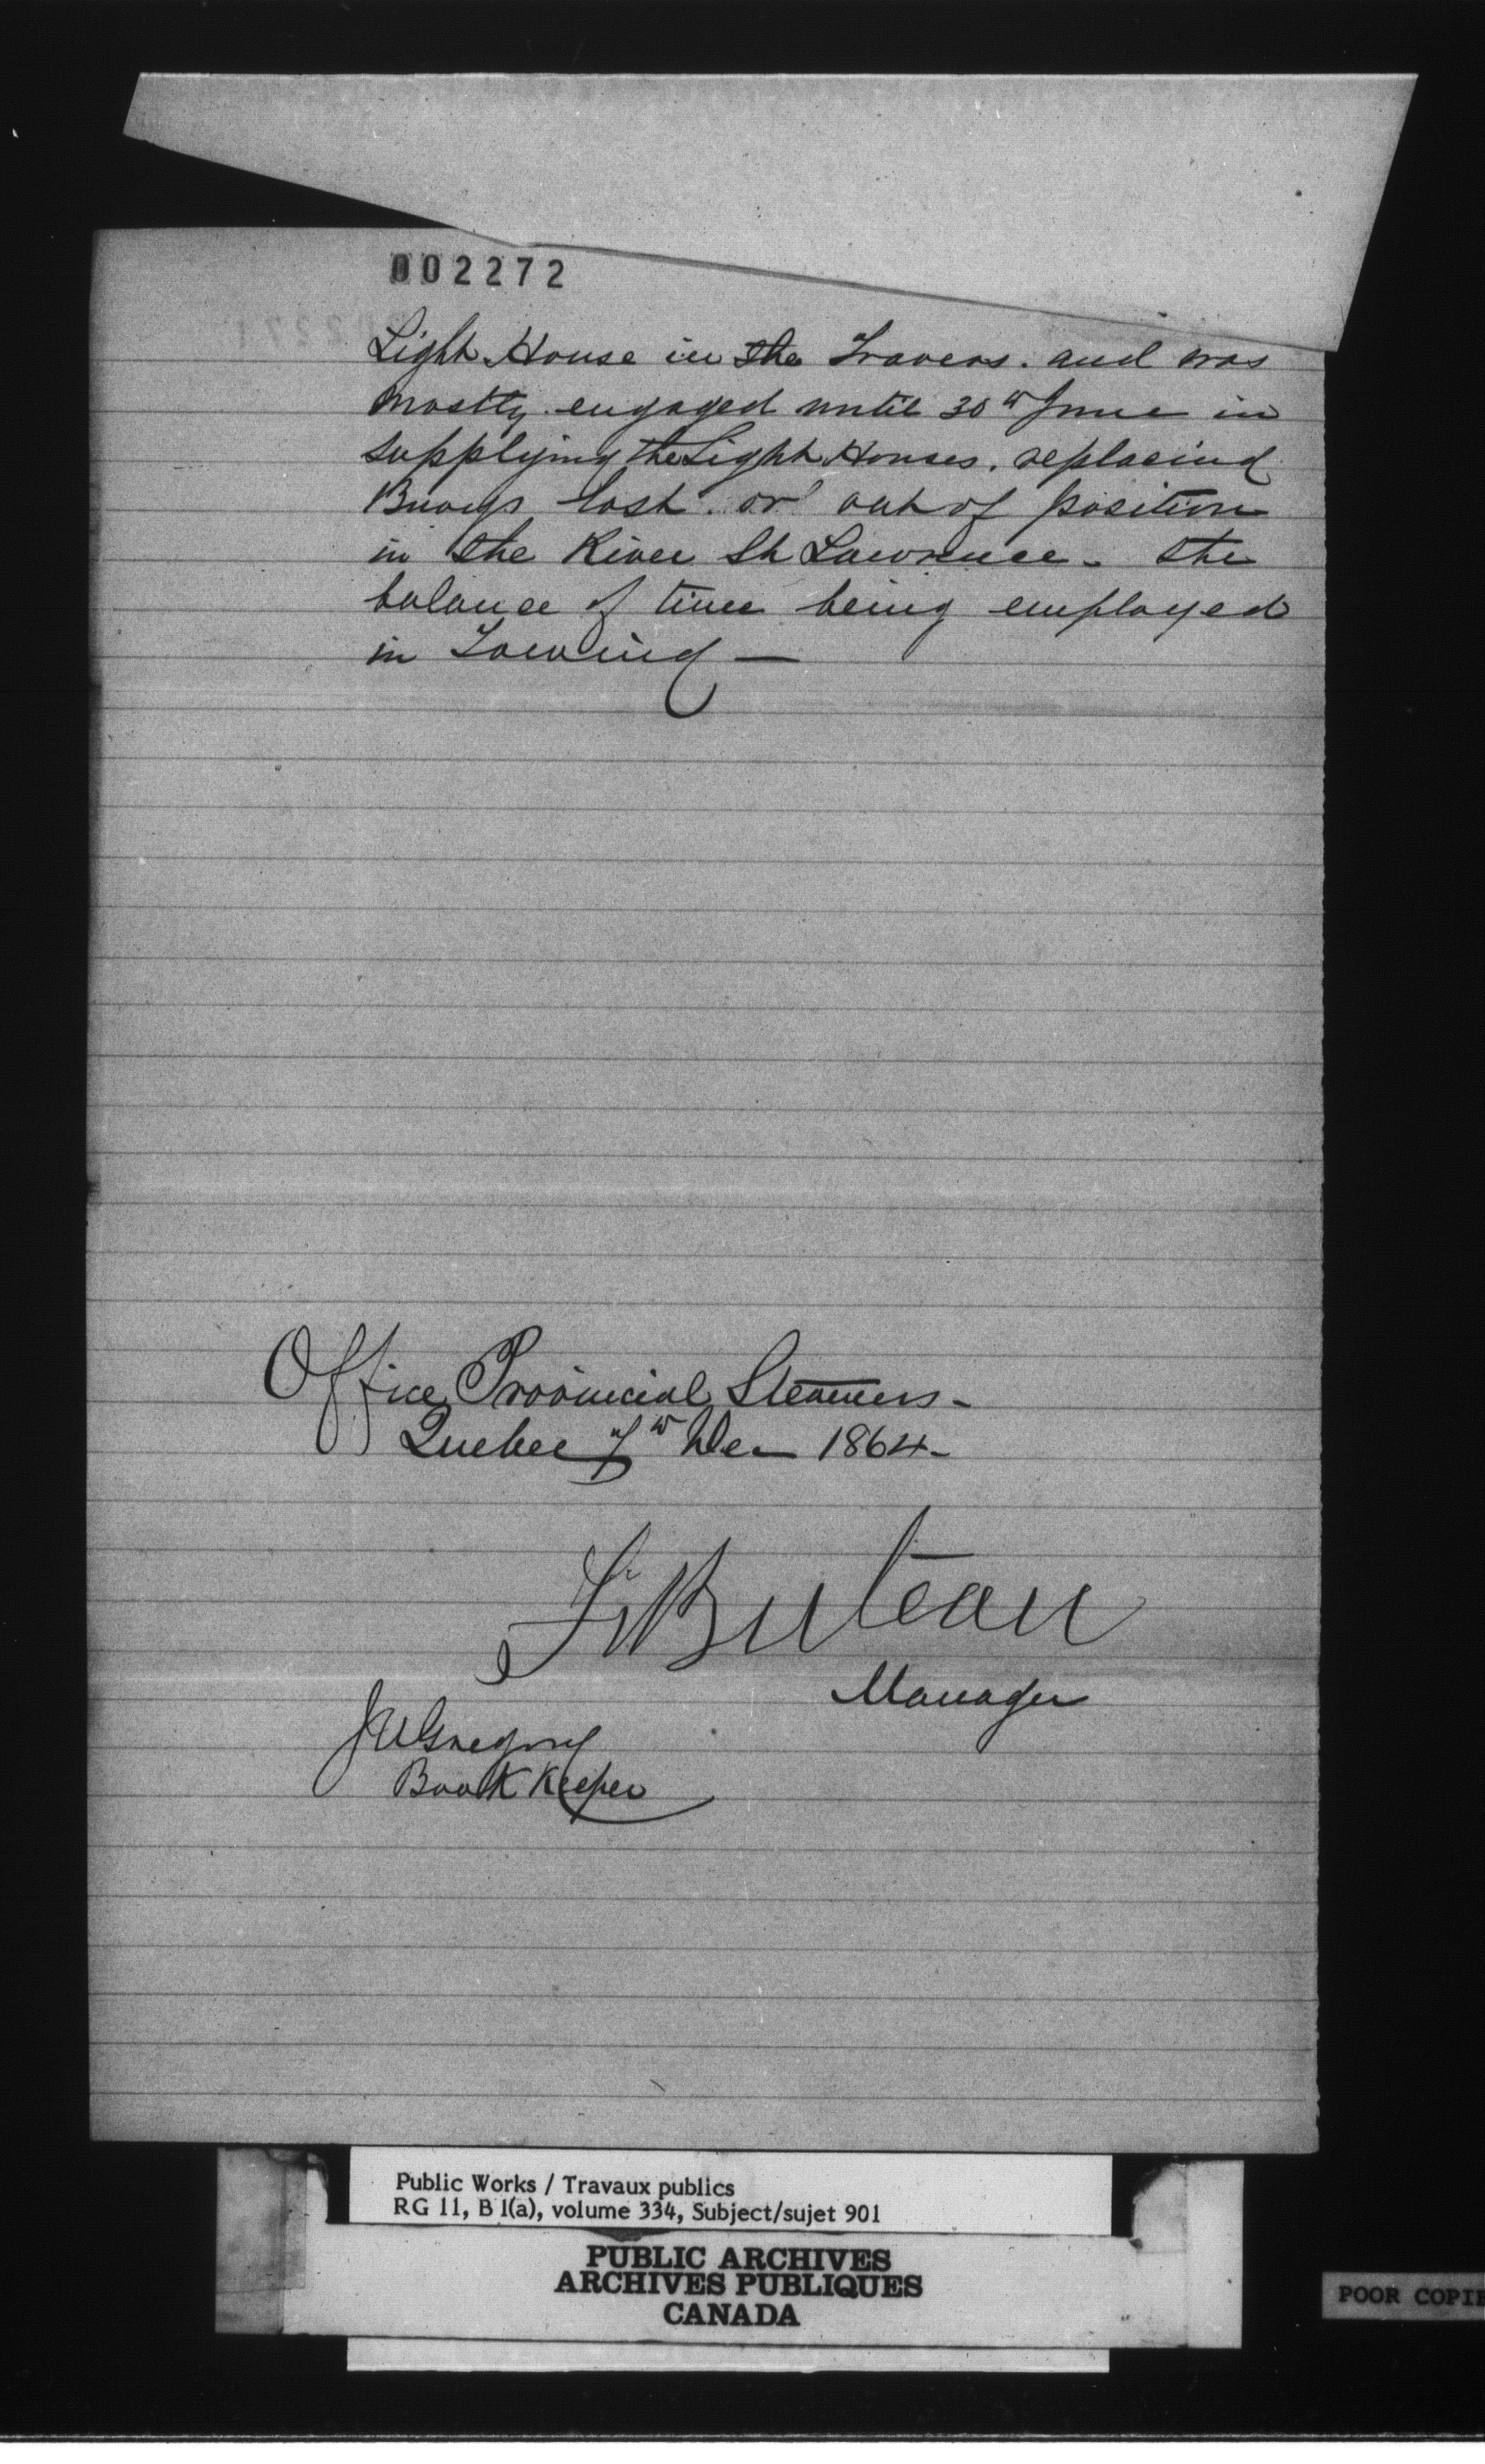 002272
Light House in the Travers. and was
mostly engaged until 30th June in
supplying the Light Houses. replacing
Buoys lost. or out of position
in the River St Lawrence. the
balance of time being employed
in Towing —
Office Provincial Steamers -
Quebec 7th Dec 1864 -
F Buteau
Manager
JU Gregory
Book Keeper
Public Works / Travaux publics
RG 11, B 1(a), volume 334, Subject/sujet 901
PUBLIC ARCHIVES
ARCHIVES PUBLIQUES
CANADA
POOR COPIE